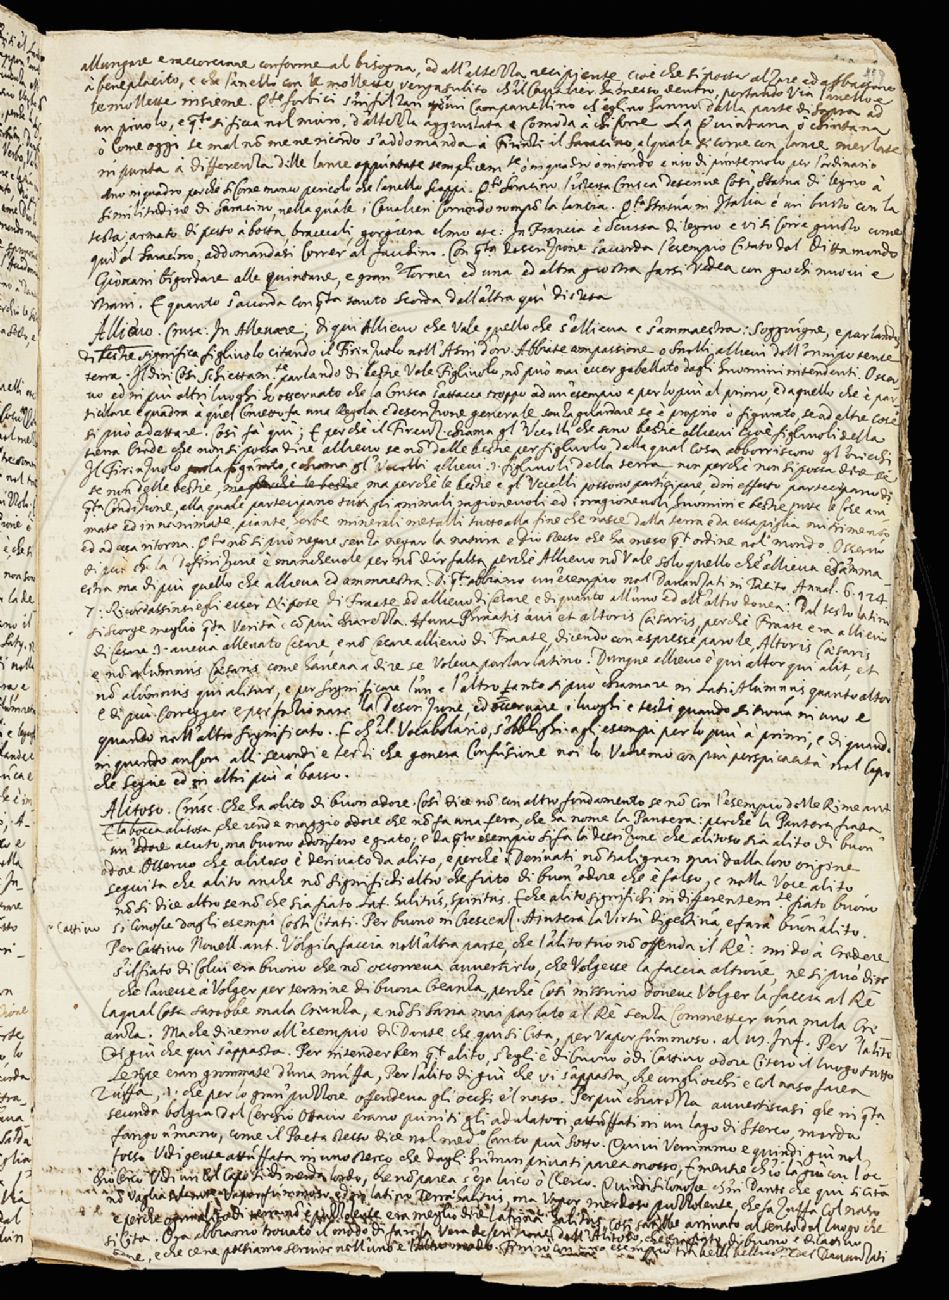 allungare e racorciare conforme al bisogno, ed all'altezza recipiente, cioè che si possa alzare ed abbassare
à beneplacito, e che l'anello con le mollette vengasulito ch'il Cavalier ha messo dentro, portando via l'anello e
le mollette insieme. un Campanellino ch'eglino hanno dalla parte di sopra ad
un piuolo, e si ficca nel muro, d'altezza aggiustata e comoda à chi corre. La Quintana, ò chintana
ò come oggi se mal nõ me ne ricordo s'addomanda à Firenze il Saracino, al quale si corre con lance merlate
in punta à differenza delle lance appuntate
perche si corre manco pericolo che l'anello scappi. Saracino l'istessa Crusca descrive così, statua di legno à
similitudine di Saracino, nella quale i Cavalieri correndo rompõ la lancia. statua in Italia è un busto con la
testa armato di petto à botta bracciali, gorgiera elmo etc: In Francia è di legno e vi si corre giusto come
quì al Saracino, addomandasi Correr al facchino. Con descrizione s'accorda l'esempio citato dal Dittamondo
Giovani bigordare alle quintane, e gran Tornei ed una ed altra giostra farsi vedea con giochi nuovi e
strani. E quanto s'accorda con tanto scorda dall'altra qui distesa
Allievo. Crusca: In Allevare, di qui Allievo che vale quello che s'allieva e s'ammaestra: soggiugne, e parlando
di bestie significa figliuolo citando il Firenzuolo nell'Asin d'oro. Abbiate compassione o snelli allievi dell'onnipotente
terra. Il dir così schiettam.te parlando di bestie vale figliuolo, nõ può mai esser gabellato dagli huomini intendenti. Osser
vo ed in più altri luoghi ò osservato che la Crusca s'attacca troppo ad un'esempio e per lo più al primo, ed a quello che è par
ticulare e quadra à quel concetto fa una regola e descrizione generale senza guardare se è proprio ò figurato, se ad altre cose
si può adattare. Così fà quì; E perche il Firenz. chiama gl'Vccelli che sono bestie allievi cioè figliuoli della
terra crede che non si possa dire allievo se nõ delle bestie per figliuolo, dalla qual cosa abborriscono gl'orecchi
Il Firenzuolo parla figurato, e chiama gl'Vccelli allievi .i. figliuoli della terra non perche non si possa dire
se non delle bestie, ma perche le bestie ma perche le bestie e gl'Vccelli possono participare ed in effetto participano di
condizione, alla quale partecipano tutti gli animali ragionevoli ed irragionevoli huomini e bestie tutte le cose ani
mate ed in animate, piante, herbe minerali metalli tutto alla fine che nasce dalla terra e da essa piglia nutrimento
ed ad essa ritorna. nõ si può negare senza negar la natura e Dio stesso che ha messo ordine nel mondo. Osservo
di più che la deffinizione è manchevole per nõ dir falsa, perchè Allievo nõ vale solo quello che s'allieva e s'amma-
estra ma di più quello che allieva ed ammaestra. Di abbiamo un esempio nel Davanzati in Tacito Annal. 6. 124.
7. Ricordassinsi egli esser nipote di Fraate, ed allievo di Cesare e di quanto all'uno ed all'altro dovea: Dal testo latino
si scorge meglio verità e con più chiarezza. Phraatis avi et altoris Cæsaris, perchè Fraate era allievo
di Cesare .i. aveva allevato Cesare, e nõ Cesare allievo di Fraate, dicendo con espresse parole, Altoris Cæsaris
e nõ alumnis Cæsaris come haveva a dire se voleva parlar latino. Dunque allievo è qui altor qui alit, et
nõ alumnus qui alitur, e per significare l'un e l'altro tanto si può chiamare in Lati: Alumnus quanto altor
e di più corregger e perfezionare la descrizione, ed osservare i luoghi e testi quando si trova in uno e
quando nell'altro significato. E ch'il Vocabolario, s'obblighi agl'esempi per lo più a primi, e di quando
in quando ancora alli secondi e terzi che genera confusione noi lo vedremo con più perspicacità nel capo
che segue ed in altri più a basso.
Alitoso. Crusc. Che ha alito di buon odore. Così dice nõ con altro fondamento se nõ con l'esempio delle Rime ant.
E la bocca alitosa che rende maggio odore che nõ fa una fera, che ha nome la Pantera: perche la Pantera fiata
un'odore acuto, ma buono odorifero e grato; e da esempio si fa la descrizione che alitoso sia alito di buon
odore. Osservo che alitoso è derivato da alito, e perchè i Derivati nõ tralignan mai dalla loro origine
seguita che alito anche nõ significhi altro che fiato di buon'odore che è falso, e nella Voce alito
nõ si dice altro se nõ che sia fiato. Lat. halitus, spiritus. E che alito significhi indifferentem.te fiato buono
ò Cattivo si conosce dagli esempi costì citati. Per buono in Crescen. Aiutera la virtù digestiva, e farà buon'alito.
Per Cattivo Novell. ant. Volgi la faccia nell'altra parte, che l'alito tuo nõ offenda il Rè: mi dò à credere
s'il fiato di colui era buono che nõ occorreva avvertirlo, che volgesse la faccia altrove, ne si può dire
che l'avesse à volger per termine di buona creanza, perchè così nissuno doveva volger la faccia al Rè
la qual cosa sarebbe mala crianza, e nõ si saria mai parlato al Rè senza commetter una mala cri
anza. Ma che diremo all'esempio di Dante che qui si cita, per vapor fummoso. al 18. Inf. Per l'alito
di giù che qui s'appasta. Per intender ben alito, s'egli è di buono ò di cattivo odore citerò il luogo tutto
Le ripe eran grommate d'una muffa, Per l'alito di giù che vi s'appasta, che cogli occhi e col naso facea
zuffa, .i. che per lo gran puzzore offendeva gli occhi e'l naso. Per più chiarezza avvertiscasi che in
seconda bolgia del cerchio ottavo erano puniti gli adulatori, attuffati in un lago di sterco, merda
fango umano, come il Poeta stesso dice nel med.o Canto più sotto. Quivi venimmo e quindi giù nel
fosso Vidi gente attuffata in uno sterco che dagli human privati parea mosso, E mentre ch'io la giù con l'oc
chio cerco Vidi un col capo sì di merda lordo, che nõ parea s'era laico ò cherco. Quindi si conosce ch'in Dante che qui si cita
nõ vaglia vapor fummoso, ed in latino Terræ halitus, ma vapor merdoso puzzolente, che fa zuffa col naso
e perchè era meglio dir latina halitus, così sarebbe arrivato al senso del luogo che
si cita. Ora abbiamo trovato il modo di farsi vera descrizione dell'Alitoso, che è fiato di buono e di cattivo
odore, e che ce ne possiamo servire nell'uno e l'altro modo. Finirò con uno esempio tra belli bellissimo del Davanzati